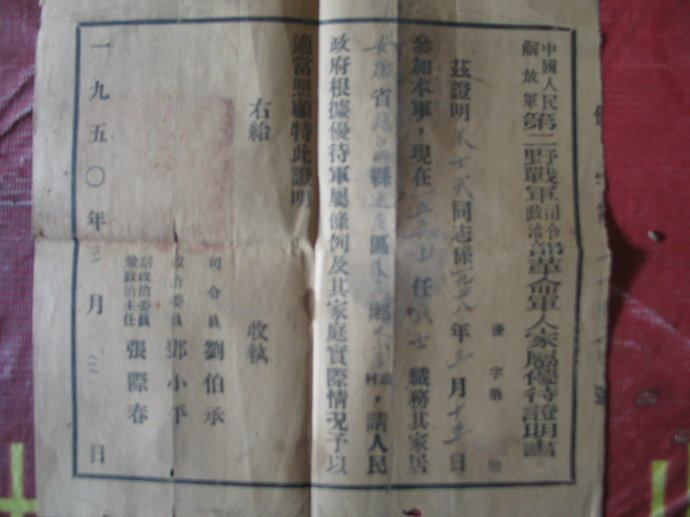 中國人民解放軍第二野戰軍司令政治部革命軍人家屬優待證明書
優字第 號
茲證明 士武同志係一九四八年三月十五日
參加本軍，現在 任戰士職務其家居
安徽省 縣 區 鄉 鎮村，請人民
政府根據優待軍屬條例及其家庭實際情況予以
適當照顧特此證明
右給 收執
司令員 劉伯承
政治委員 鄧小平
副政治委員兼政治主任 張際春
一九五〇年 月 日